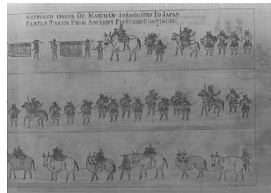 SUPPOSED ORDER OF MARCH OF ISRAELITES TO JAPAN
PARTLY TAKEN FROM ANCIENT PICTURES (CONTINUED)